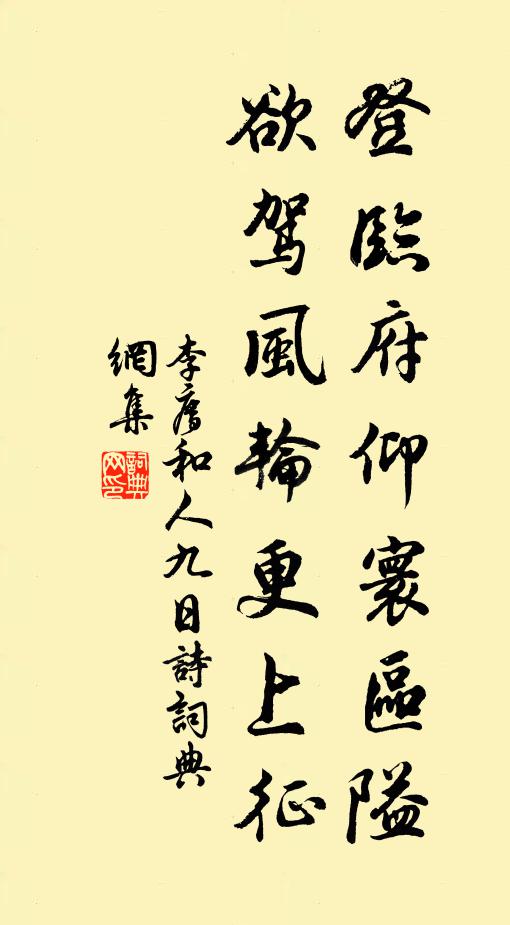 登臨府仰寰區隘
欲駕風輪更上征
李廌和人九日詩詞典
網集
詞典網印